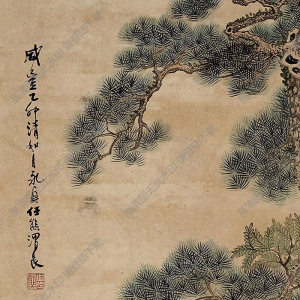 咸豐乙卯清和月永興任熊渭長